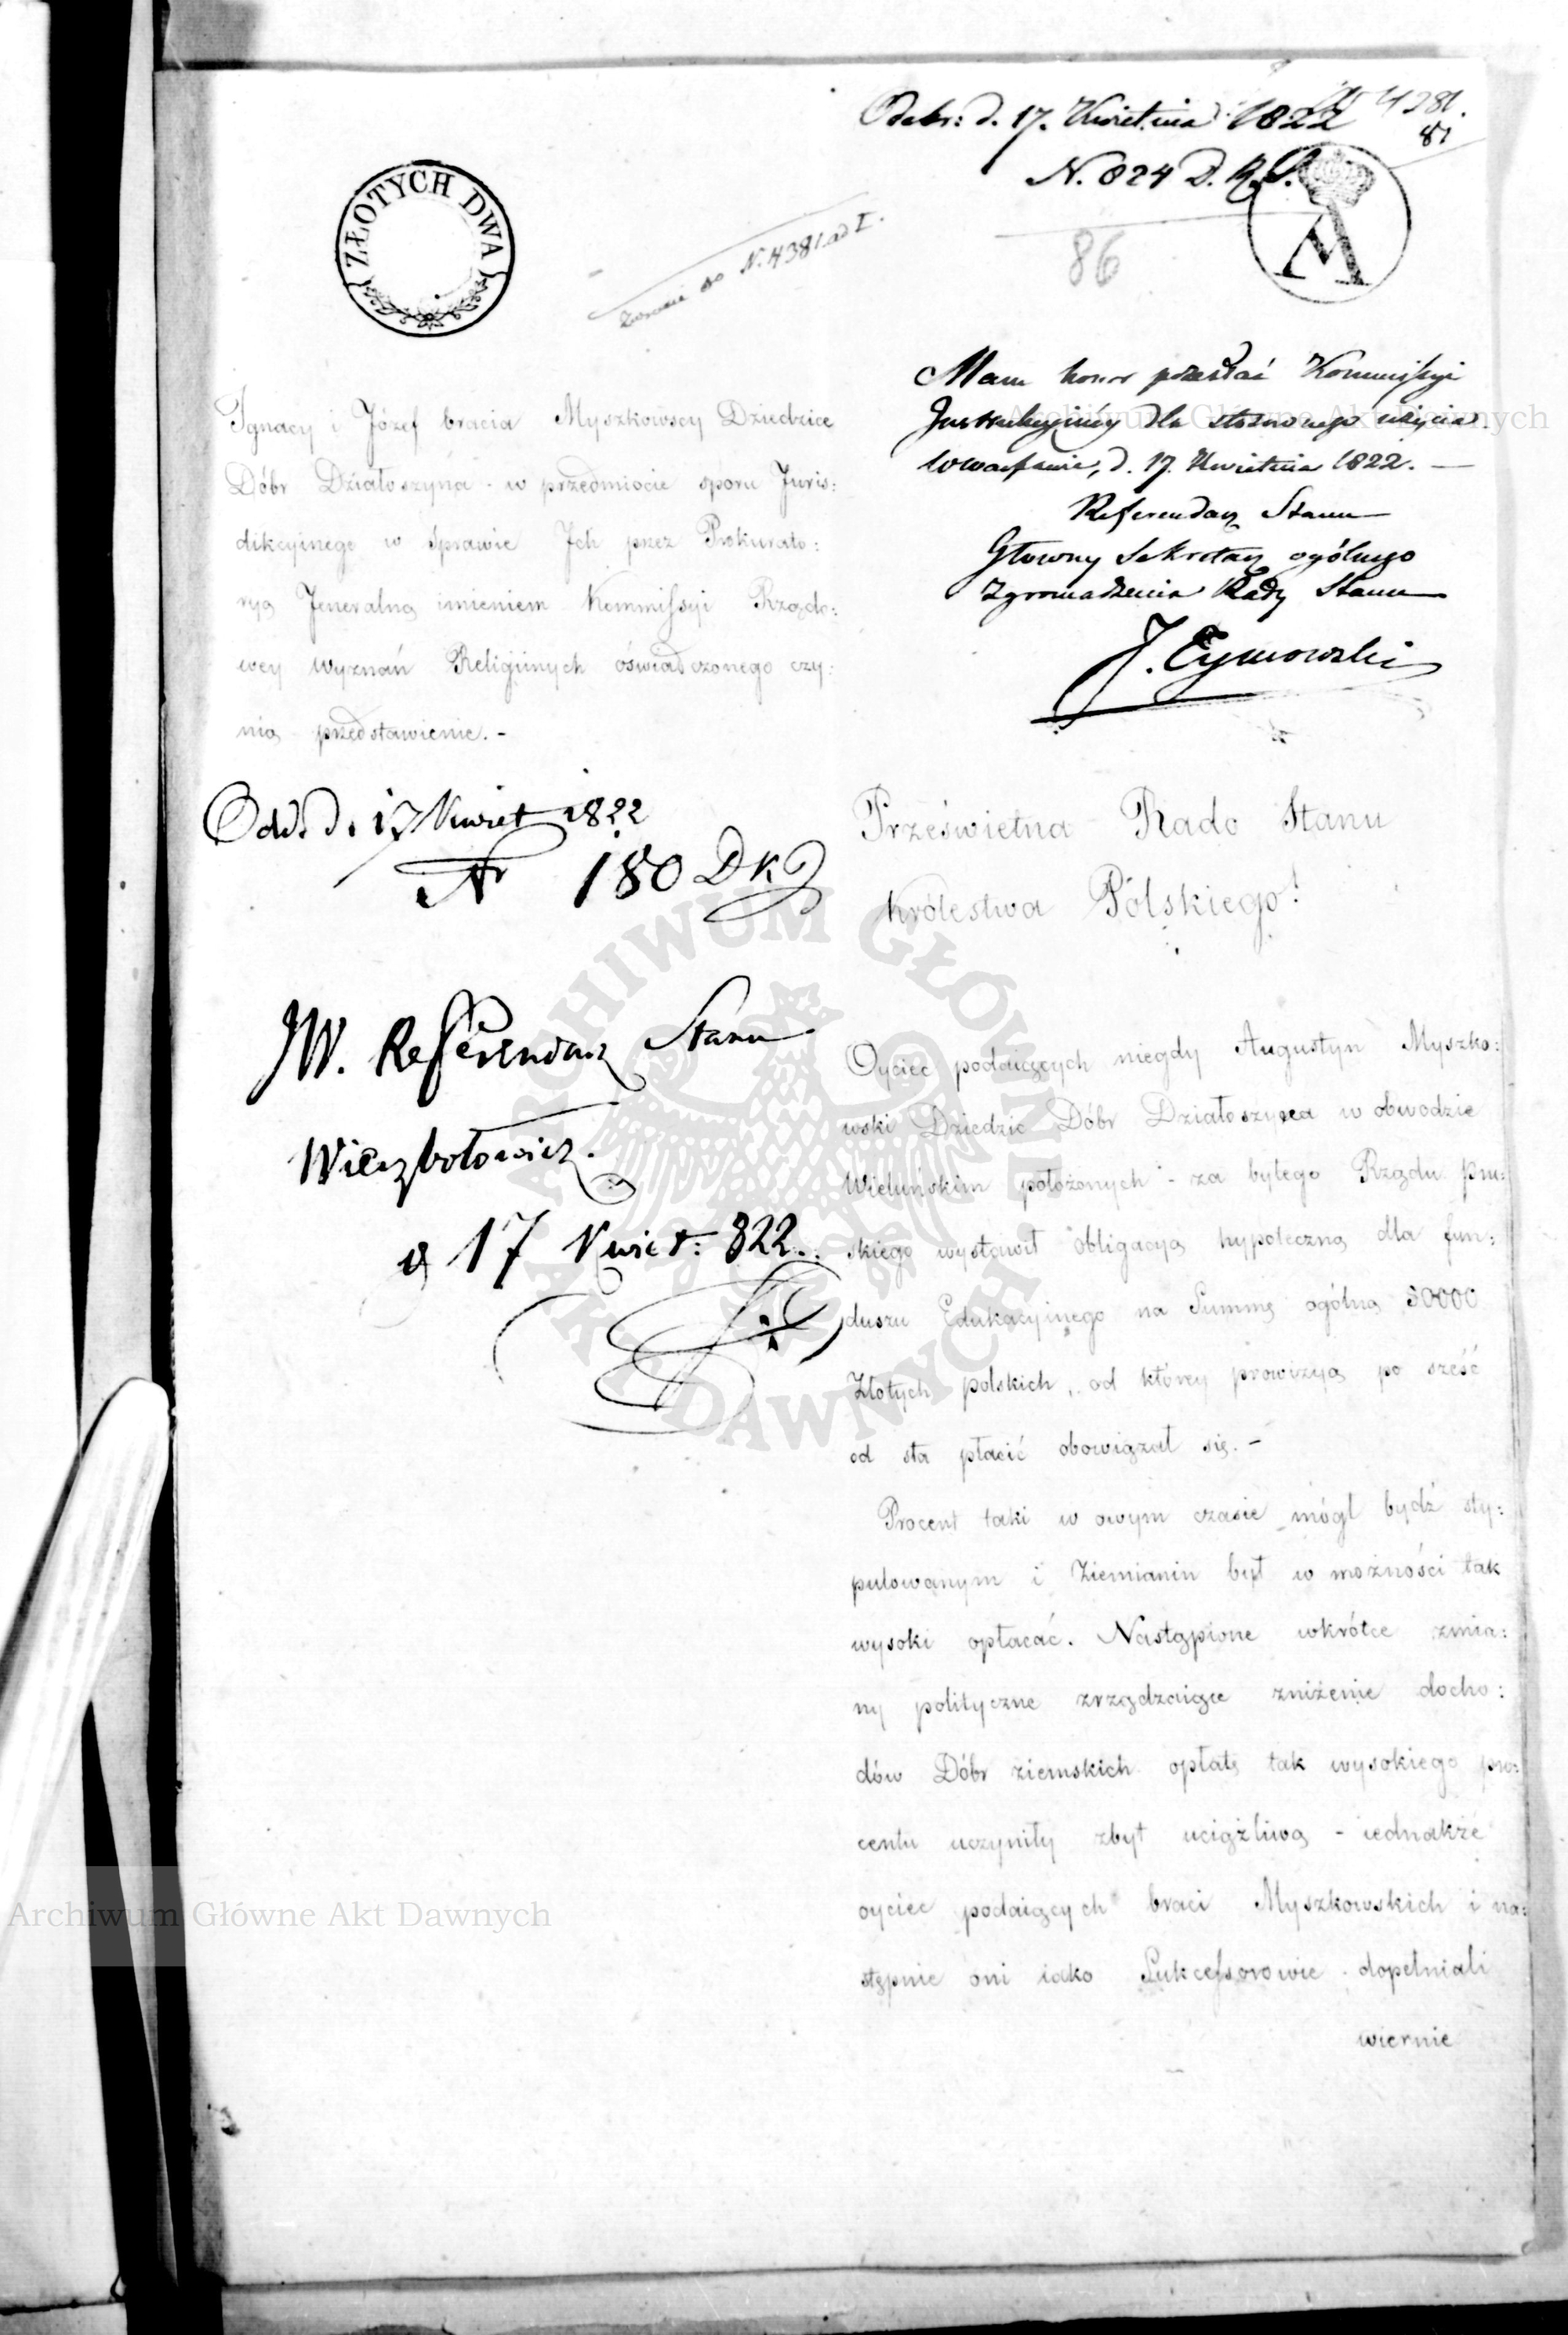 Odebr: d. 17. Kwietnia 1822
N. 824 D. R. S.
4381.
87
86
ZŁOTYCH DWA
N. 4381 ad I.
Mam honor przesłać Kommissyi
Instrukcyiney dla stosownego użycia
w Warszawie, d. 17. Kwietnia 1822. —
Referendarz Stanu
Głowny Sekretarz ogólnego
Zgromadzenia Rady Stanu
J. Tymowski
Ignacy i Józef bracia Myszkowscy Dziedzice
Dóbr Działoszyna - w przedmiocie sporu Juris:
dikcyinego w sprawie Ich przez Prokurato:
ryą Jeneralną imieniem Kommissyi Rządo:
wey Wyznań Religiinych oświadczonego czy:
nią przedstawienie. -
Odd. d. 17 Kwiet 1822
Nr 180 DK
JW. Referendarz Stanu
Wierzbołowicz.
d 17 Kwiet: 822.
Prześwietna Rado Stanu
Królestwa Polskiego!
Oyciec podaiących niegdy Augustyn Myszko:
wski Dziedzic Dóbr Działoszyna w obwodzie
Wieluńskim położonych - za byłego Rządu pru:
skiego wystawił obligacyą hypoteczną dla fun:
duszu Edukacyinego na Summę ogólną 30000
Złotych polskich, od którey prowizyą po sześć
od sta płacić obowiązał się. -
Procent taki w owym czasie mógł bydź sty:
pulowanym i Ziemianin był w możności tak
wysoki opłacać. Nastąpione wkrótce zmia:
ny polityczne zrządzaiące zniżenie docho:
dów Dóbr ziemskich opłatę tak wysokiego pro:
centu uczyniły zbyt uciążliwą - iednakże
oyciec podaiących braci Myszkowskich i na:
stępnie oni iako Sukcessorowie dopełniali
wiernie
Archiwum Główne Akt Dawnych
ARCHIWUM GŁÓWNE AKT DAWNYCH
Archiwum Główne Akt Dawnych